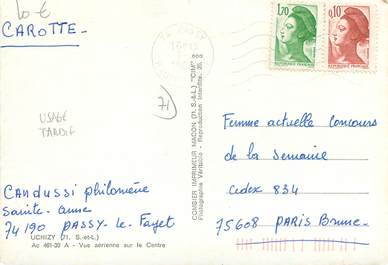 10€
CAROTTE.
1,70
RÉPUBLIQUE FRANÇAISE
0,10
RÉPUBLIQUE FRANÇAISE
71
USAGE
TARDIF
COMBIER IMPRIMEUR MACON (71. S.-&-L.) "CIM"
Photographie Véritable - Reproduction Interdite.
Femme actuelle concours
de la semaine
Cedex 834
75608 PARIS Brune.
Candussi philomène
Sainte-Anne
74190 PASSY-le-Fayet
UCHIZY (71. S.-et-L.)
Ac 461-20 A - Vue aérienne sur le Centre